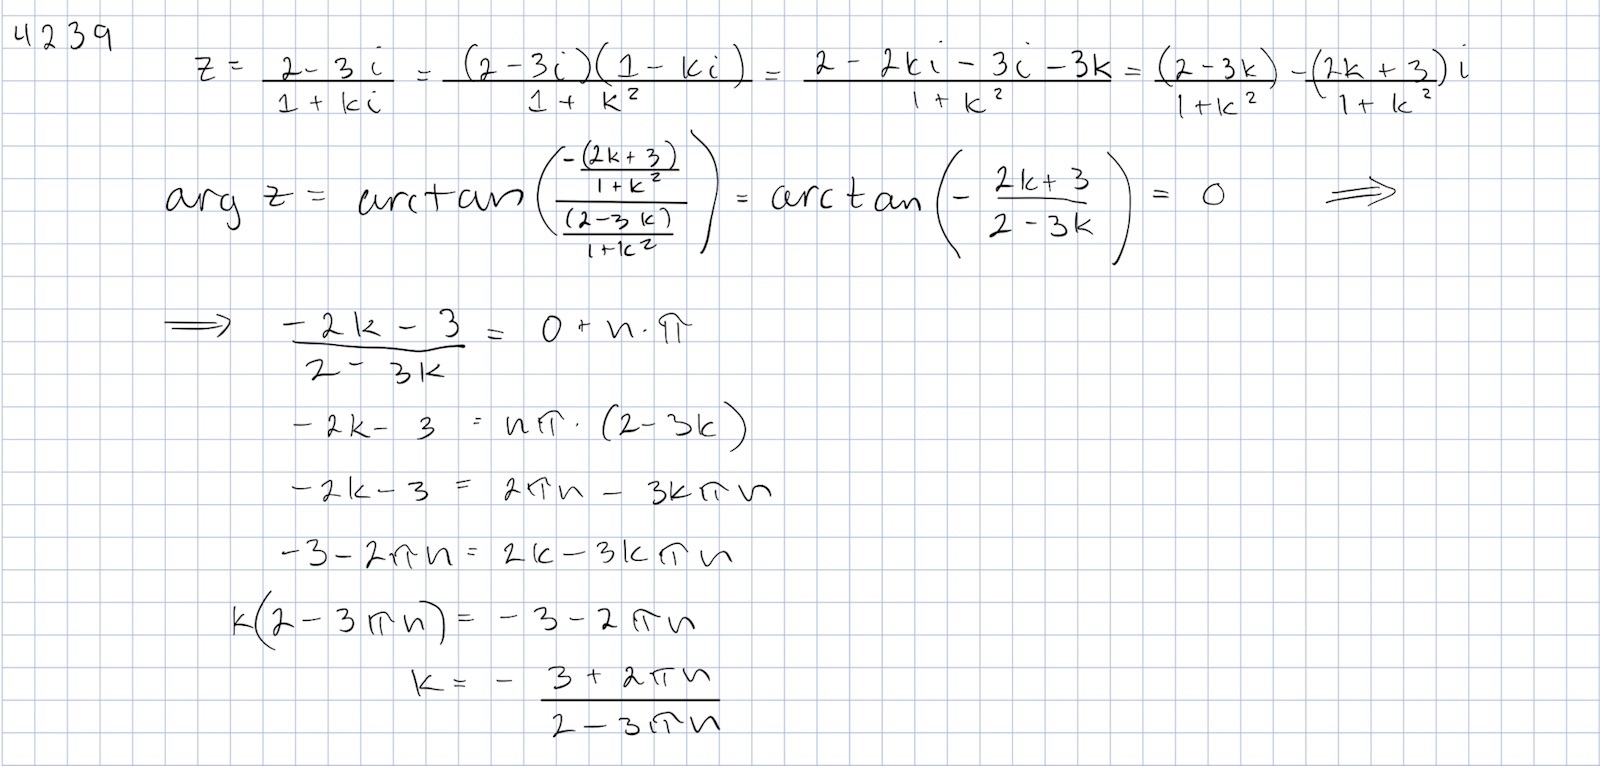 4239
z = \frac{2-3i}{1+ki} = \frac{(2-3i)(1-ki)}{1+k^2} = \frac{2-2ki-3i-3k}{1+k^2} = \frac{(2-3k)}{1+k^2} - \frac{(2k+3)}{1+k^2} i
arg z = arctan \left( \frac{\frac{-(2k+3)}{1+k^2}}{\frac{(2-3k)}{1+k^2}} \right) = arctan \left( - \frac{2k+3}{2-3k} \right) = 0 ⟹
⟹ \frac{-2k-3}{2-3k} = 0 + n·π
-2k-3 = nπ·(2-3k)
-2k-3 = 2πn - 3kπn
-3-2πn = 2k-3kπn
k(2-3πn) = -3-2πn
k = - \frac{3+2πn}{2-3πn}